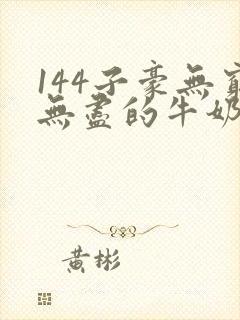 144子豪無窮
無盡的牛奶
黃彬